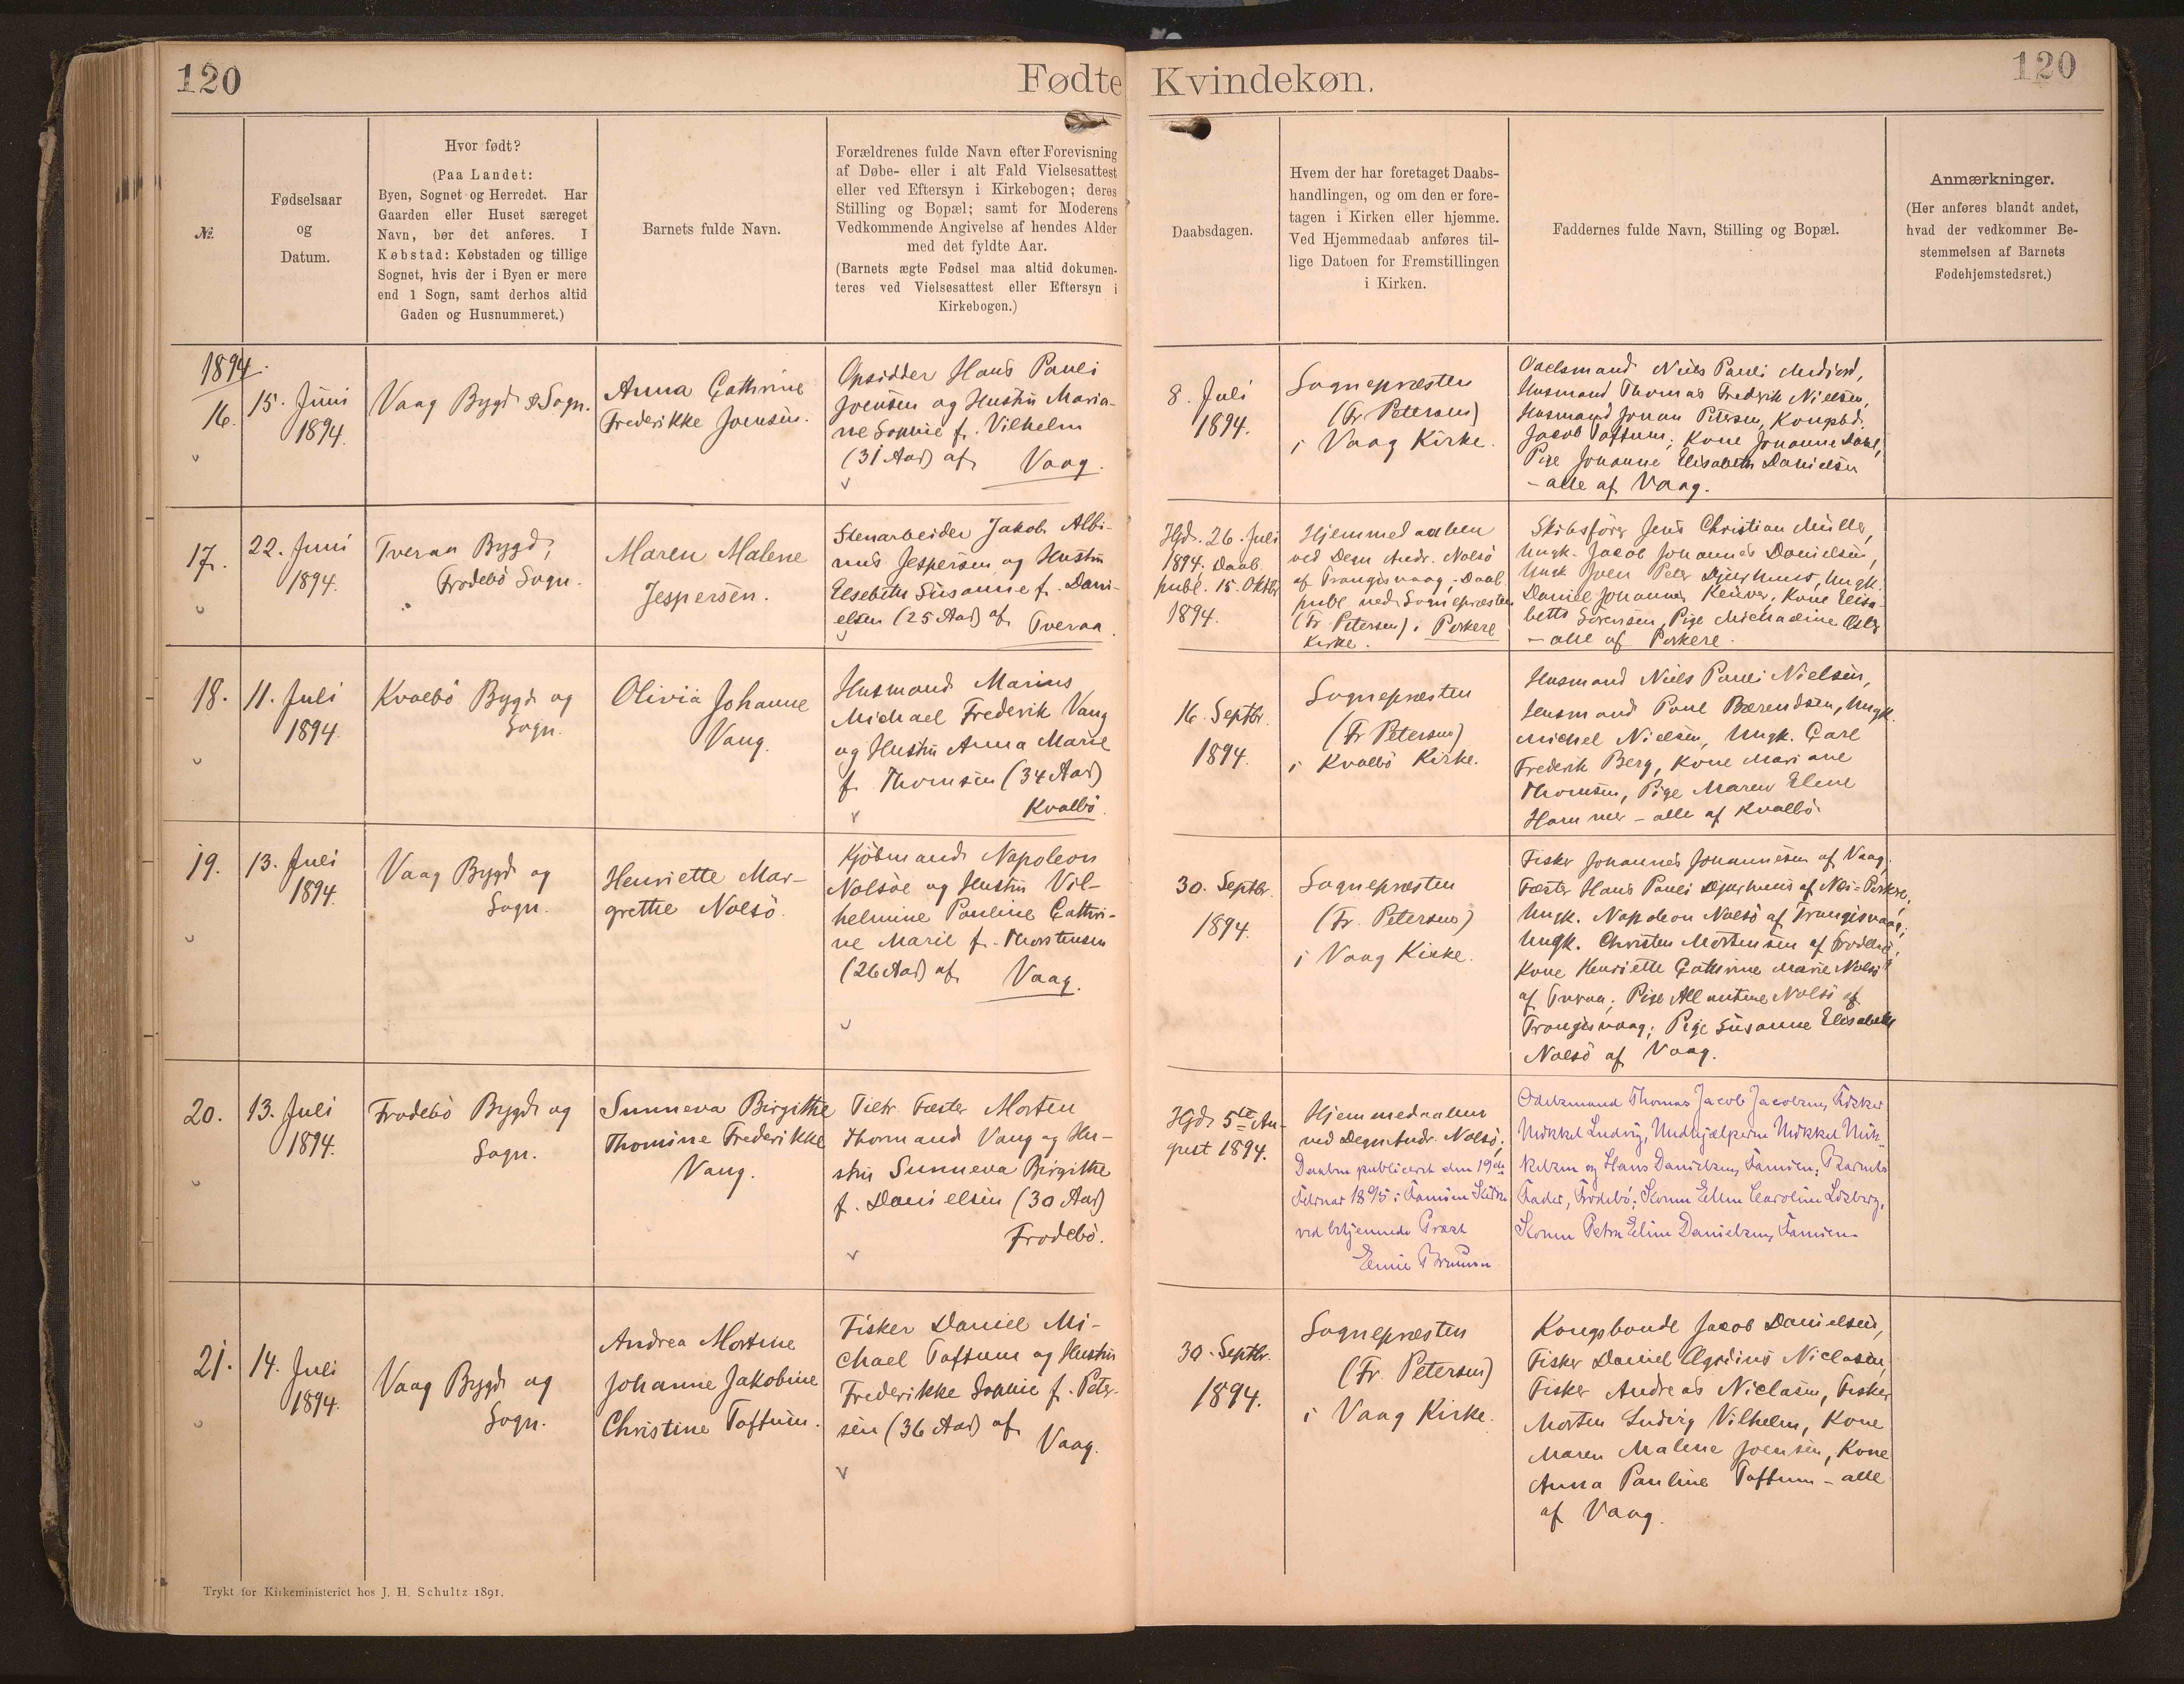 120
Fødte
Kvindekøn.
120
№.
Fødselsaar
og
Datum.
Hvor født?
(Paa Landet:
Byen, Sognet og Herredet. Har
Gaarden eller Huset særeget
Navn, bør det anføres. I
Købstad: Købstaden og tillige
Sognet, hvis der i Byen er mere
end 1 Sogn, samt derhos altid
Gaden og Husnummeret.)
Barnets fulde Navn.
Forældrenes fulde Navn efter Forevisning
af Døbe- eller i alt Fald Vielsesattest
eller ved Eftersyn i Kirkebogen; deres
Stilling og Bopæl; samt for Moderens
Vedkommende Angivelse af hendes Alder
med det fyldte Aar.
(Barnets ægte Fødsel maa altid dokumen-
teres ved Vielsesattest eller Eftersyn i
Kirkebogen.)
Daabsdagen.
Hvem der har foretaget Daabs-
handlingen, og om den er fore-
tagen i Kirken eller hjemme.
Ved Hjemmedaab anføres til-
lige Datoen for Fremstillingen
i Kirken.
Faddernes fulde Navn, Stilling og Bopæl.
Anmærkninger.
(Her anføres blandt andet,
hvad der vedkommer Be-
stemmelsen af Barnets
Fødehjemstedsret.)
1894.
16.
15. Juni
1894.
Vaag Bygd & Sogn.
Anna Cathrine
Frederikke Joensen.
Opsidder Hans Pauli
Joensen og Hustru Maria-
ne Sophie f. Vilhelm
(31 Aar) af Vaag.
8. Juli
1894.
Sognepræsten
(Fr. Petersen)
i Vaag Kirke.
Odelsmand Niels Pauli
Husmand Thomas Frederik Nielsen,
Husmand Johan Petersen, Kongsbd.
Jacob Toftum; Kone Johanne Dahl,
Pige Johanne Elisabeth Danielsen
- alle af Vaag.
17.
22. Juni
1894.
Tveraa Bygd,
Frodebö Sogn.
Maren Malene
Jespersen.
Stenarbeider Jakob Albi-
nus Jespersen og Hustru
Elsebeth Susanne f. Dani-
elsen (25 Aar) af Tveraa.
Hjd. 26. Juli
1894. Daab.
publ. 15. Oktbr
1894.
Hjemmedaaben
ved Degn Andr. Nolsö
af Trangisvaag; Daab.
publ. ved Sognepræsten
(Fr. Petersen) i Porkere
Kirke.
Skibsförer Jens Christian Müller,
Ungk. Jacob Johannes Danielsen,
Ungk. Joen Peter Djurhuus, Ungk.
Daniel Johannes Kjölver, Kone Elisa-
beth Sörensen, Pige Michaeline
- alle af Porkere.
18.
11. Juli
1894.
Kvalbö Bygd og
Sogn.
Olivia Johanne
Vang.
Husmand Marius
Michael Frederik Vang
og Hustru Anna Marie
f. Thomsen (34 Aar)
Kvalbö.
16. Septbr.
1894.
Sognepræsten
(Fr. Petersen)
i Kvalbö Kirke.
Husmand Niels Pauli Nielsen,
Husmand Poul Bærendsen, Ungk.
Michel Nielsen, Ungk. Carl
Frederik Berg, Kone Mariane
Thomsen, Pige Maren Elene
Hammer - alle af Kvalbö.
19.
13. Juli
1894.
Vaag Bygd og
Sogn.
Henriette Mar-
grethe Nolsö.
Kjöbmand Napoleon
Nolsöe og Hustru Vil-
helmine Pauline Cathri-
ne Marie f. Thorstensen
(26 Aar) af Vaag.
30. Septbr.
1894.
Sognepræsten
(Fr. Petersen)
i Vaag Kirke.
Fisker Johannes Johannesen af Vaag;
Fæster Hans Pauli Djurhuus af Næs - Porkere;
Ungk. Napoleon Nolsö af Trangisvaag;
Ungk. Christen Mortensen af Frodebö;
Kone Henriette Cathrine Marie Nolsö
af Tveraa; Pige Albertine Nolsö af
Trangisvaag; Pige Susanne Elisabeth
Nolsö af Vaag.
20.
13. Juli
1894.
Frodebö Bygd og
Sogn.
Sunneva Birgithe
Thomine Frederikke
Vang.
Fæster Morten
Thormand Vang og Hu-
stru Sunneva Birgithe
f. Danielsen (30 Aar)
Frodebö.
Hjd. 5te Au-
gust 1894.
Hjemmedaaben
ved Degn Andr. Nolsö;
Daaben publiceret den 19de
Februar 1895 i Famien Kirke
ved betjenende Præst
Emil Bruun
Odelsmand Thomas Jacob Jacobsen, Fisker
Mikkel Ludvig, Undhjælperne Mikkel Mik-
kelsen og Hans Danielsen, Famien; Barnets
Fader, Frodebö; Konen Ellen Caroline Lisberg,
Konen Petra Eline Danielsen, Famien.
21.
14. Juli
1894.
Vaag Bygd og
Sogn.
Andrea Mortine
Johanne Jakobine
Christine Toftum.
Fisker Daniel Mi-
chael Toftum og Hustru
Frederikke Sophie f. Peter-
sen (36 Aar) af
Vaag.
30. Septbr.
1894.
Sognepræsten
(Fr. Petersen)
i Vaag Kirke.
Kongsbonde Jacob Danielsen,
Fisker Daniel Niclasen,
Fisker Andreas Niclasen, Fisker
Morten Ludvig Vilhelm, Kone
Maren Malene Joensen, Kone
Anna Pauline Toftum - alle
af Vaag.
Trykt for Kirkeministeriet hos J. H. Schultz 1891.